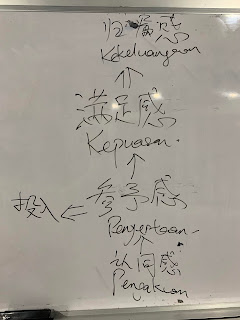 归属感
Kekeluargaan
满足感
Kepuasan.
投入 ⇐ 参予感
Penyertaan.
认同感
Pengakuan